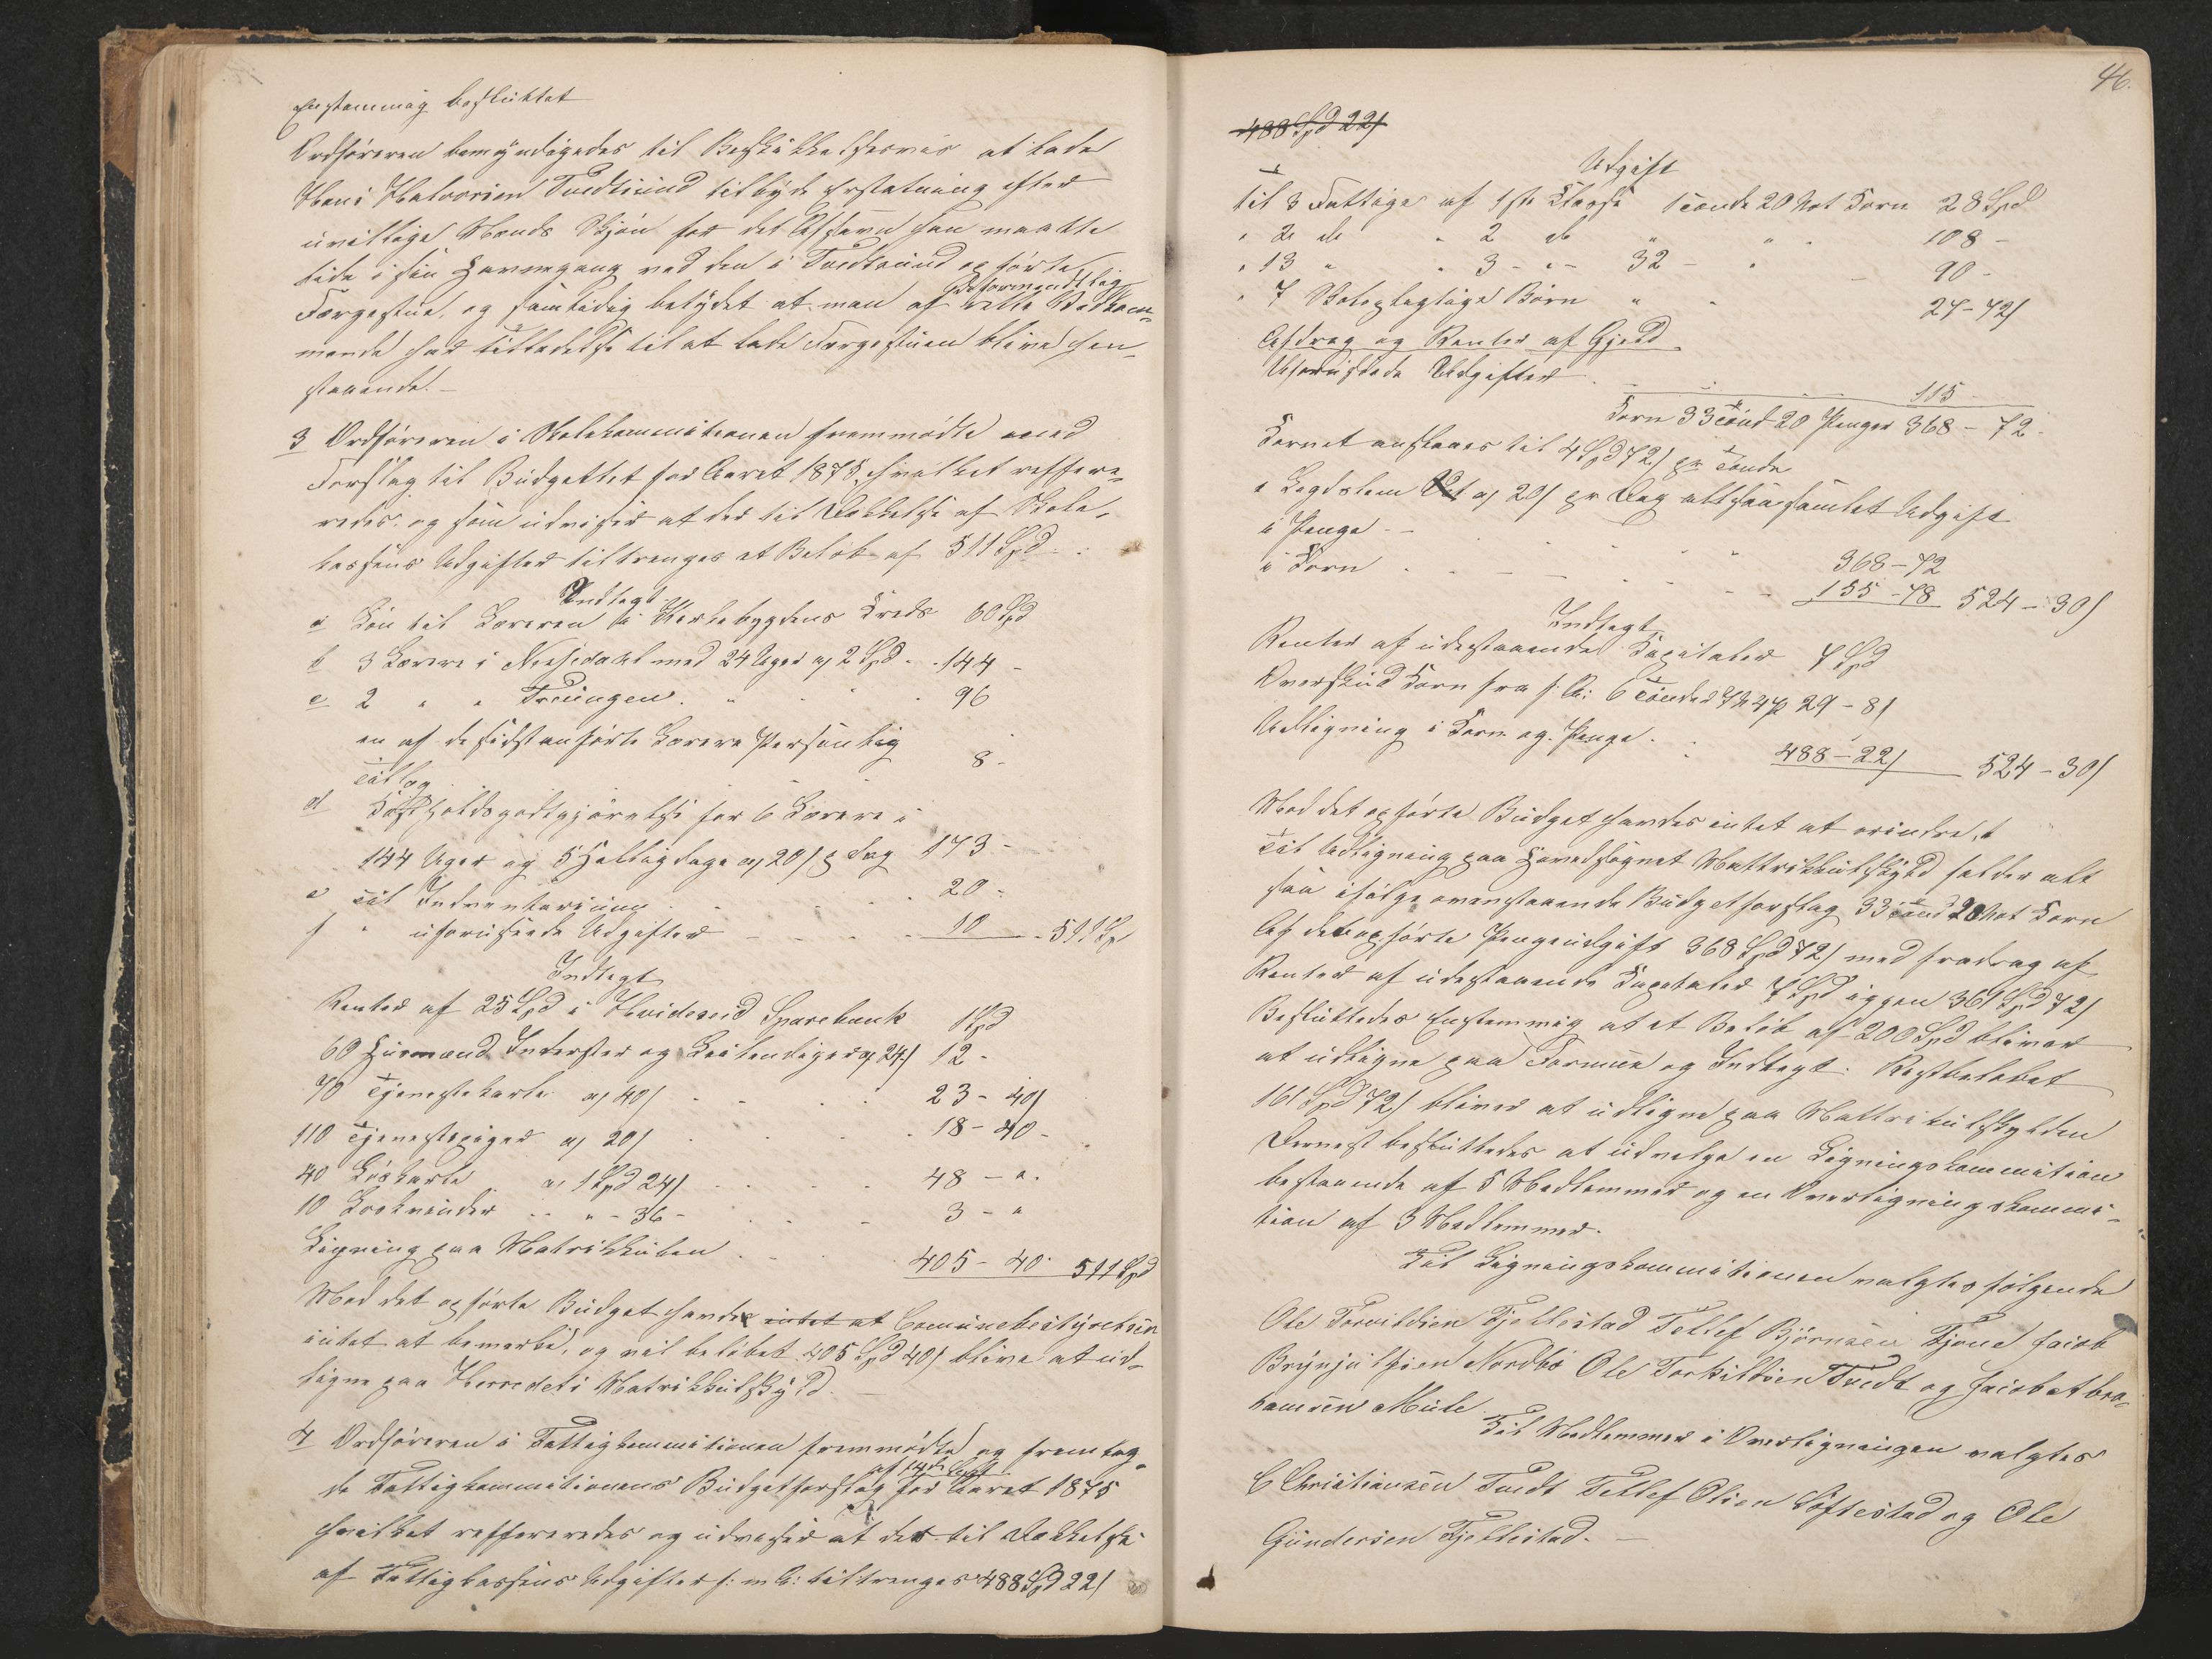 Enstemmig besluttet
Ordføreren bemyndigedes til Beskikkelsesvis at lade
Hans Halvorsen Tvedtsund tilbyde Erstatning efter
uvillige Mænds Skjøn for det Afsavn han maatte
lide i sin Havnegang ved den i Tvedtsund opførte
formentlig
Færgestue, og samtidig betydet at man af rette Vedkom-
mende har Tilladelse til at lade Færgestuen blive hen-
staaende.-
3 Ordføreren i Skolekommitionen fremmødte med
Forslag til Budgettet for Aaret 1875, hvilket reffere-
redes, og som udviser at der til Dækkelse af Skole-
kassens Udgifter tiltrenges et Beløb af 511 Spd
Indtegt
a Løn til Læreren i Kirkebygdens Kreds 60 Spd
b 3 Lærere i Nissedahl med 24 Uger a 2 Spd - 144 -
c 2 " " Treungen " 96
en af de sidstanførte Lærere Personlig
Tillæg 8 -
d Kostholdsgodtgjørelse for 6 Lærere i
144 Uger og 5 Helligdage a 20 s p Dag 173 -
e Til Indventarium 20 -
f " uforudseede Udgifter 10 511 Sp
Indtegt
Renter af 25 Spd i Hvideseid Sparebank 1 Spd
60 Husmænd Inderster og Leilendiger a 24 s 12 -
70 Tjenestekarle a 40 s 23 - 40 s
110 Tjenestepiger a 20 s 18 - 40 -
40 Løskarle a 1 Spd 24 s 48 - " -
10 Løskvinder - " - 36 - 3 - "
Ligning paa Matrikkulen 405 - 40 - 511 Spd
Mod det opførte Budget havde intet at Comunebestyrelsen
intet at bemærke, og vil beløbet 405 Spd 40 s blive at ud-
ligne paa Herredets Matrikkulskyld.
4 Ordføreren i Fattigkommitionen fremmødte og fremlag-
af 14de Sept
de Fattigkommitionens Budgetforslag for Aaret 1875
hvilket reffereredes og udviser at der til Dækkelse
af Fattigkassens Udgifter f: m A: tiltrenges 488 Spd 22 s
46.
488 Spd 22 s
Udgift
Til 3 Fattige af 1ste Classe 1 Tønde 20 Pot Korn 28 Spd
" 21 do " 2 do " " - 108 -
" 13 " " 3 - " - 32 - " 90 -
" 7 Skolepligtige Børn " " 27 - 72 s
Afdrag og Renter af Gjeld
Uforudseede Udgifter 115
Korn 33 Tønd 20 Penger 368 - 72 -
Kornet ansaaes til 4 Spd 72 s pr Tønde
a Legdslem a 20 s pr Dag altsaa samlet Udgift
i Penge - - 368 - 72
i Korn 155 - 78 524 - 30 s
Indtegt
Renter af udestaaende Kapitaler 7 Spd
Overskud Korn fra f: A: 6 Tønder 29 - 8 s
Udligning i Korn og Penge 488 - 22 s 524 - 30 s
Mod det opførte Budget havdes intet at erindre,
Til Udligning paa Hovedsognet Mattrikkulskyld falder alt
saa ifølge ovenstaaende Budgetforslag 33 Tønd 20 Pot Korn
Af den opførte Pengeudgift 368 Spd 72 s med fradrag af
Renter af udestaaende Kapitaler 7 Spd iggen 361 Spd 72 s
Besluttedes Enstemmig at et Beløb af 200 Spd bliver
at udligne paa Formue og Indtegt. Restbeløbet
161 Spd 72 s bliver at udligne paa Mattrikulskylden
Dernest besluttedes at udvelge en Ligningskommition
bestaaende af 5 Medlemmer og en Overligningskommi-
tion af 3 Medlemmer.
Til Ligningskommitionen valgtes følgende
Ole Torkildsen Fjellestad Tellef Bjørnsen Fjone Jacob
Brynjulfsen Nordbø Ole Torkildsen Tvedt og Jacob Abra-
hamsen Mule.
Til Medlemmer i Overligningen valgtes
C Christiansen Tvedt Tellef Olsen Loftestad og Ole
Gundersen Fjellestad. -